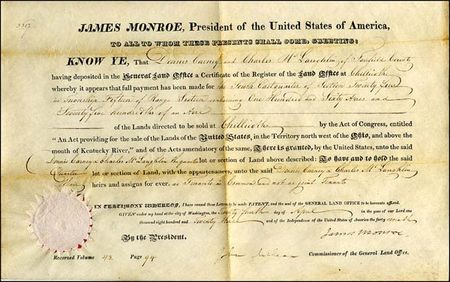 JAMES MONROE, President of the United States of America,
TO ALL TO WHOM THESE PRESENTS SHALL COME, GREETING:
KNOW YE, That Dennis Carney and Charles McLaughlin of Fairfield County
having deposited in the General Land Office a Certificate of the Register of the Land Office at Chillicothe
whereby it appears that full payment has been made for the South East quarter of Section Twenty
in Township Fifteen of Range containing One Hundred and Sixty Acres and
Twenty five hundredths of an Acre
of the Lands directed to be sold at Chillicothe by the Act of Congress, entitled
“An Act providing for the sale of the Lands of the United States, in the Territory north west of the Ohio, and above the
mouth of Kentucky River,” and of the Acts amendatory of the same, There is granted, by the United States, unto the said
Dennis Carney & Charles McLaughlin the quarter lot or section of Land above described: To have and to hold the said
quarter lot or section of Land, with the appurtenances, unto the said Dennis Carney & Charles McLaughlin
their heirs and assigns for ever, as Tenants in Common and not as joint Tenants
IN TESTIMONY WHEREOF, I have caused these Letters to be made PATENT, and the SEAL of the GENERAL LAND OFFICE to be hereunto affixed.
GIVEN under my hand at the city of Washington, the day of April in the year of our Lord one
thousand eight hundred and Twenty and of the Independence of the United States of America the forty
By the President, James Monroe
Commissioner of the General Land Office.
Recorded Volume 42 Page 94